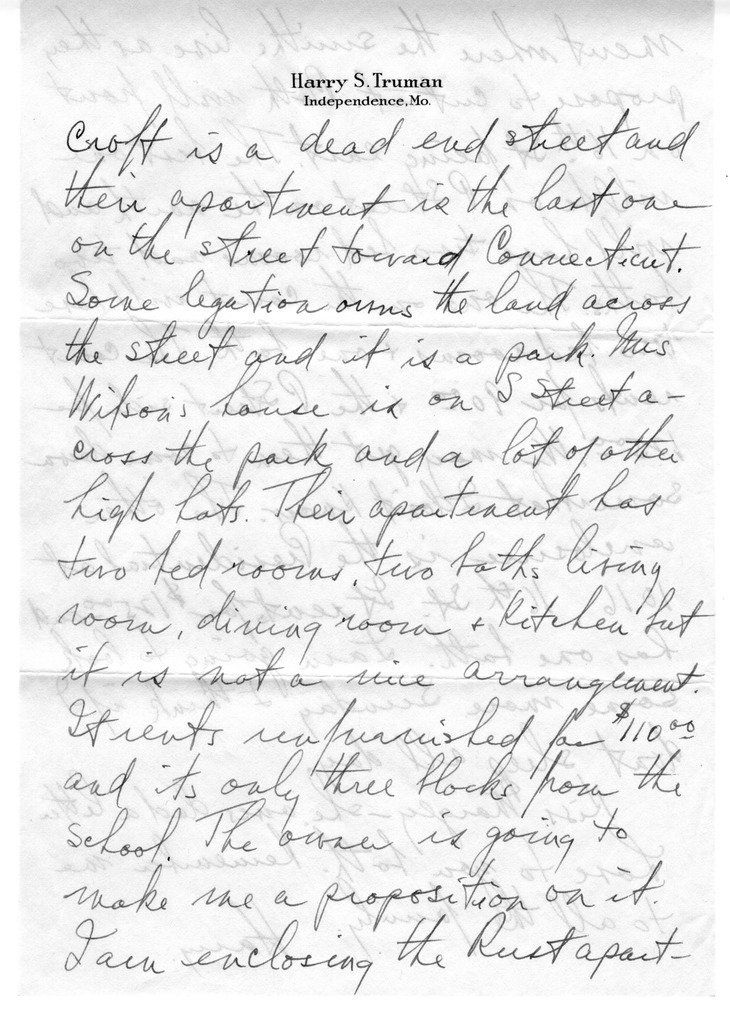 Harry S. Truman
Independence, Mo.
Croft is a dead end street and
their apartment is the last one
on the street toward Connecticut.
Some legation owns the land across
the street and it is a park. Mrs
Wilson's house is on S Street a-
cross the park and a lot of other
high hats. Their apartment has
two bed rooms, two baths living
room, dining room + kitchen but
it is not a nice arrangement.
It rents unfurnished for $110.00
and its only three blocks from the
school. The owner is going to
make me a proposition on it.
I am enclosing the Rust apart-